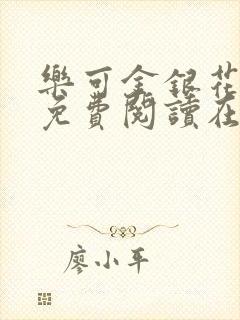 樂可金銀花
免費閱讀在
廖小平